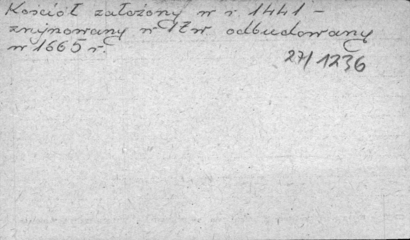 Kościół założony w r. 1441 –
zrujnowany w 17 w odbudowany
w 1665 r.
27/1236